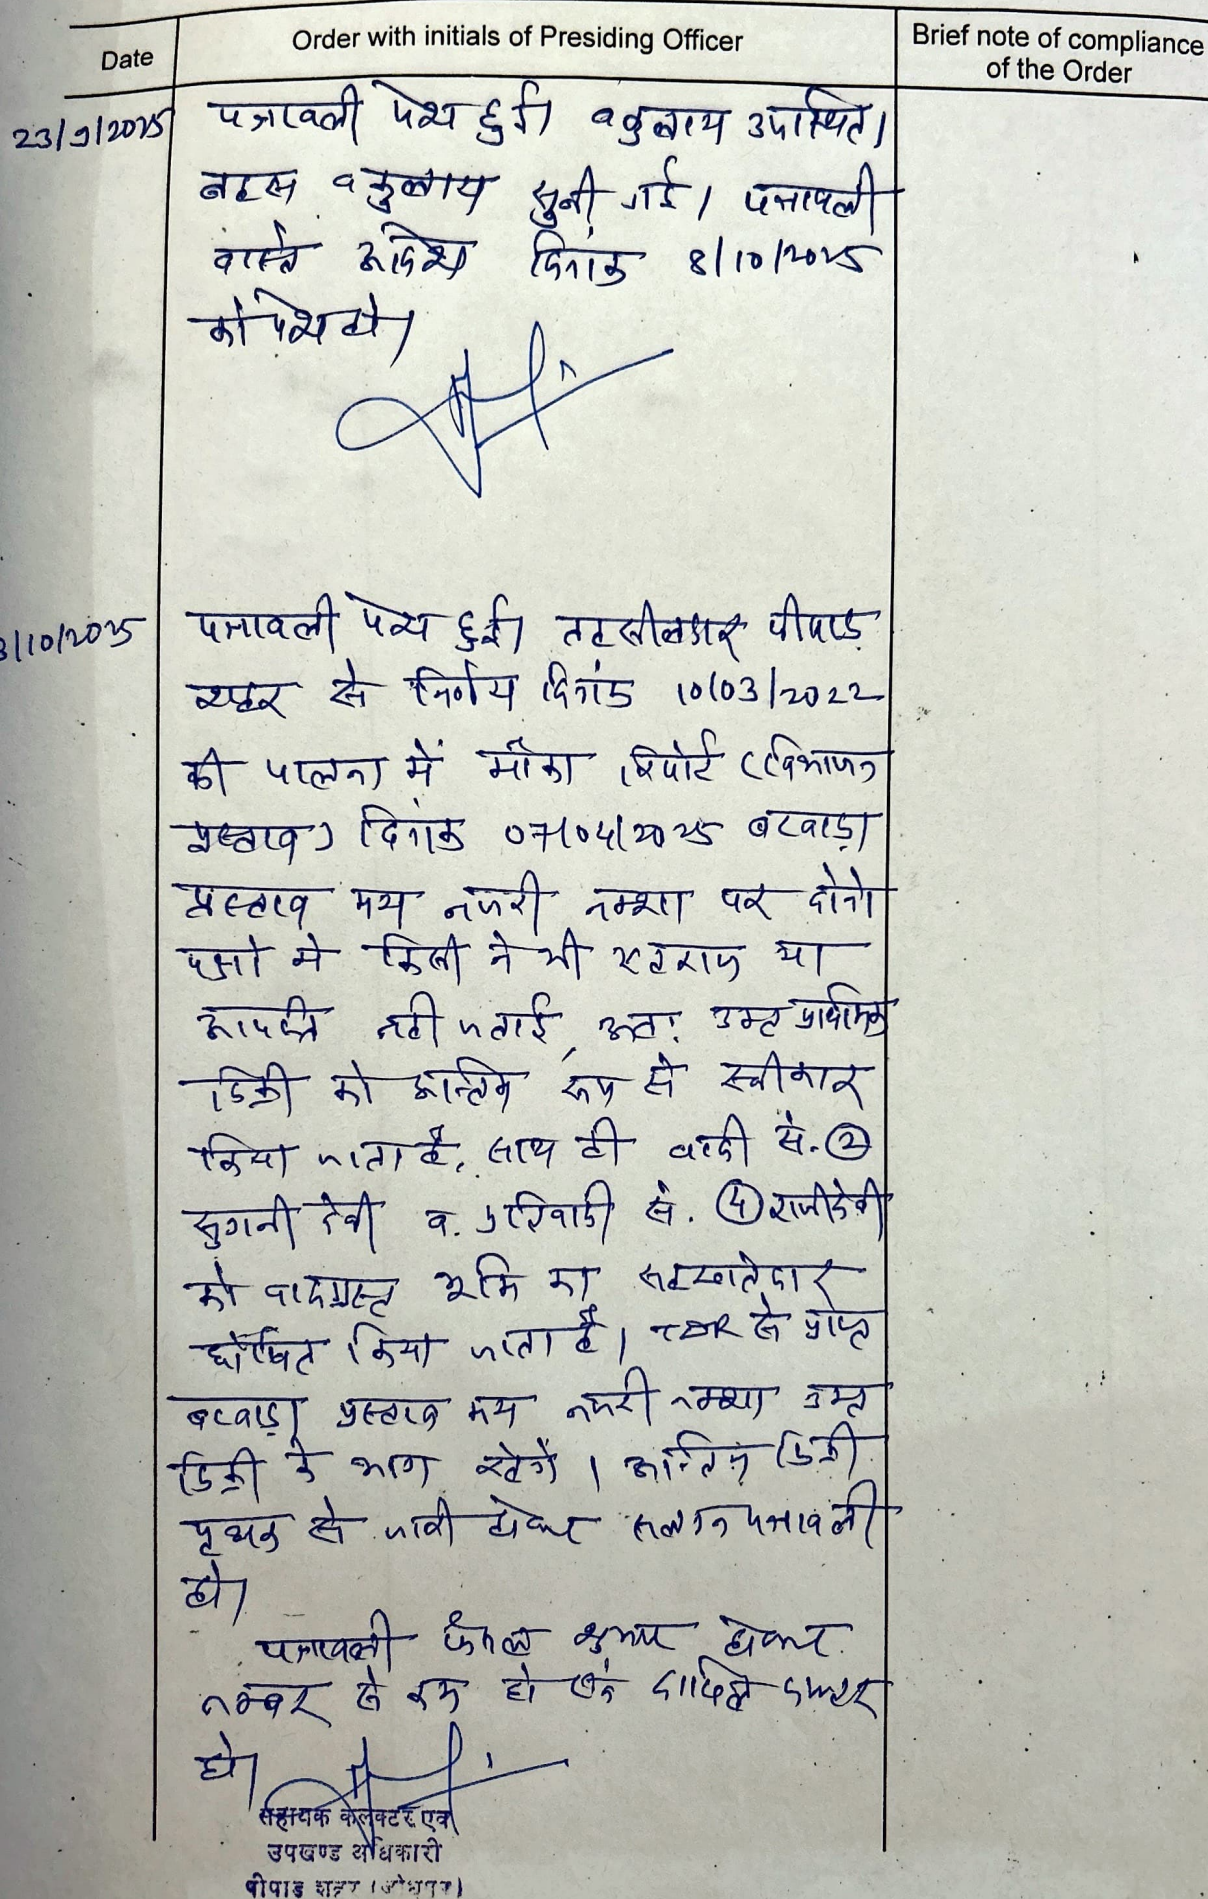 Date
Order with initials of Presiding Officer
Brief note of compliance
of the Order
23/9/2025
पत्रावली पेश हुई। वकुलाय उपस्थित।
बहस वकुलाय सुनी गई। पत्रावली
वास्ते आदेश दिनांक 8/10/2025
को पेश हो।
/10/2025
पत्रावली पेश हुई। तहसीलदार पीपाड़
शहर से निर्णय दिनांक 10/03/2022
की पालना में मौका रिपोर्ट (विभाजन
प्रस्ताव) दिनांक 07/04/2025 बटवाड़ा
प्रस्ताव मय नजरी नक्शा पर दोनो
पक्षो मे किसी ने भी एतराज या
आपत्ति नही जताई, अतः उक्त प्राथमिक
डिक्री को अन्तिम रूप से स्वीकार
किया जाता है, साथ ही वादी सं. (2)
सुगनी देवी व. प्रतिवादी सं. (4) राजीदेवी
को वादग्रस्त भूमि का सहखातेदार
घोषित किया जाता है। TDR से प्राप्त
बटवाड़ा प्रस्ताव मय नजरी नक्शा उक्त
डिक्री के भाग रहेगें। अन्तिम डिक्री
पृथक से जारी होकर संलग्न पत्रावली
हो।
पत्रावली फैसल शुमार होकर
नम्बर से कम हो दाखिल दफ्तर
हो।
सहायक कलक्टर एवं
उपखण्ड अधिकारी
पीपाड़ शहर (जोधपुर)